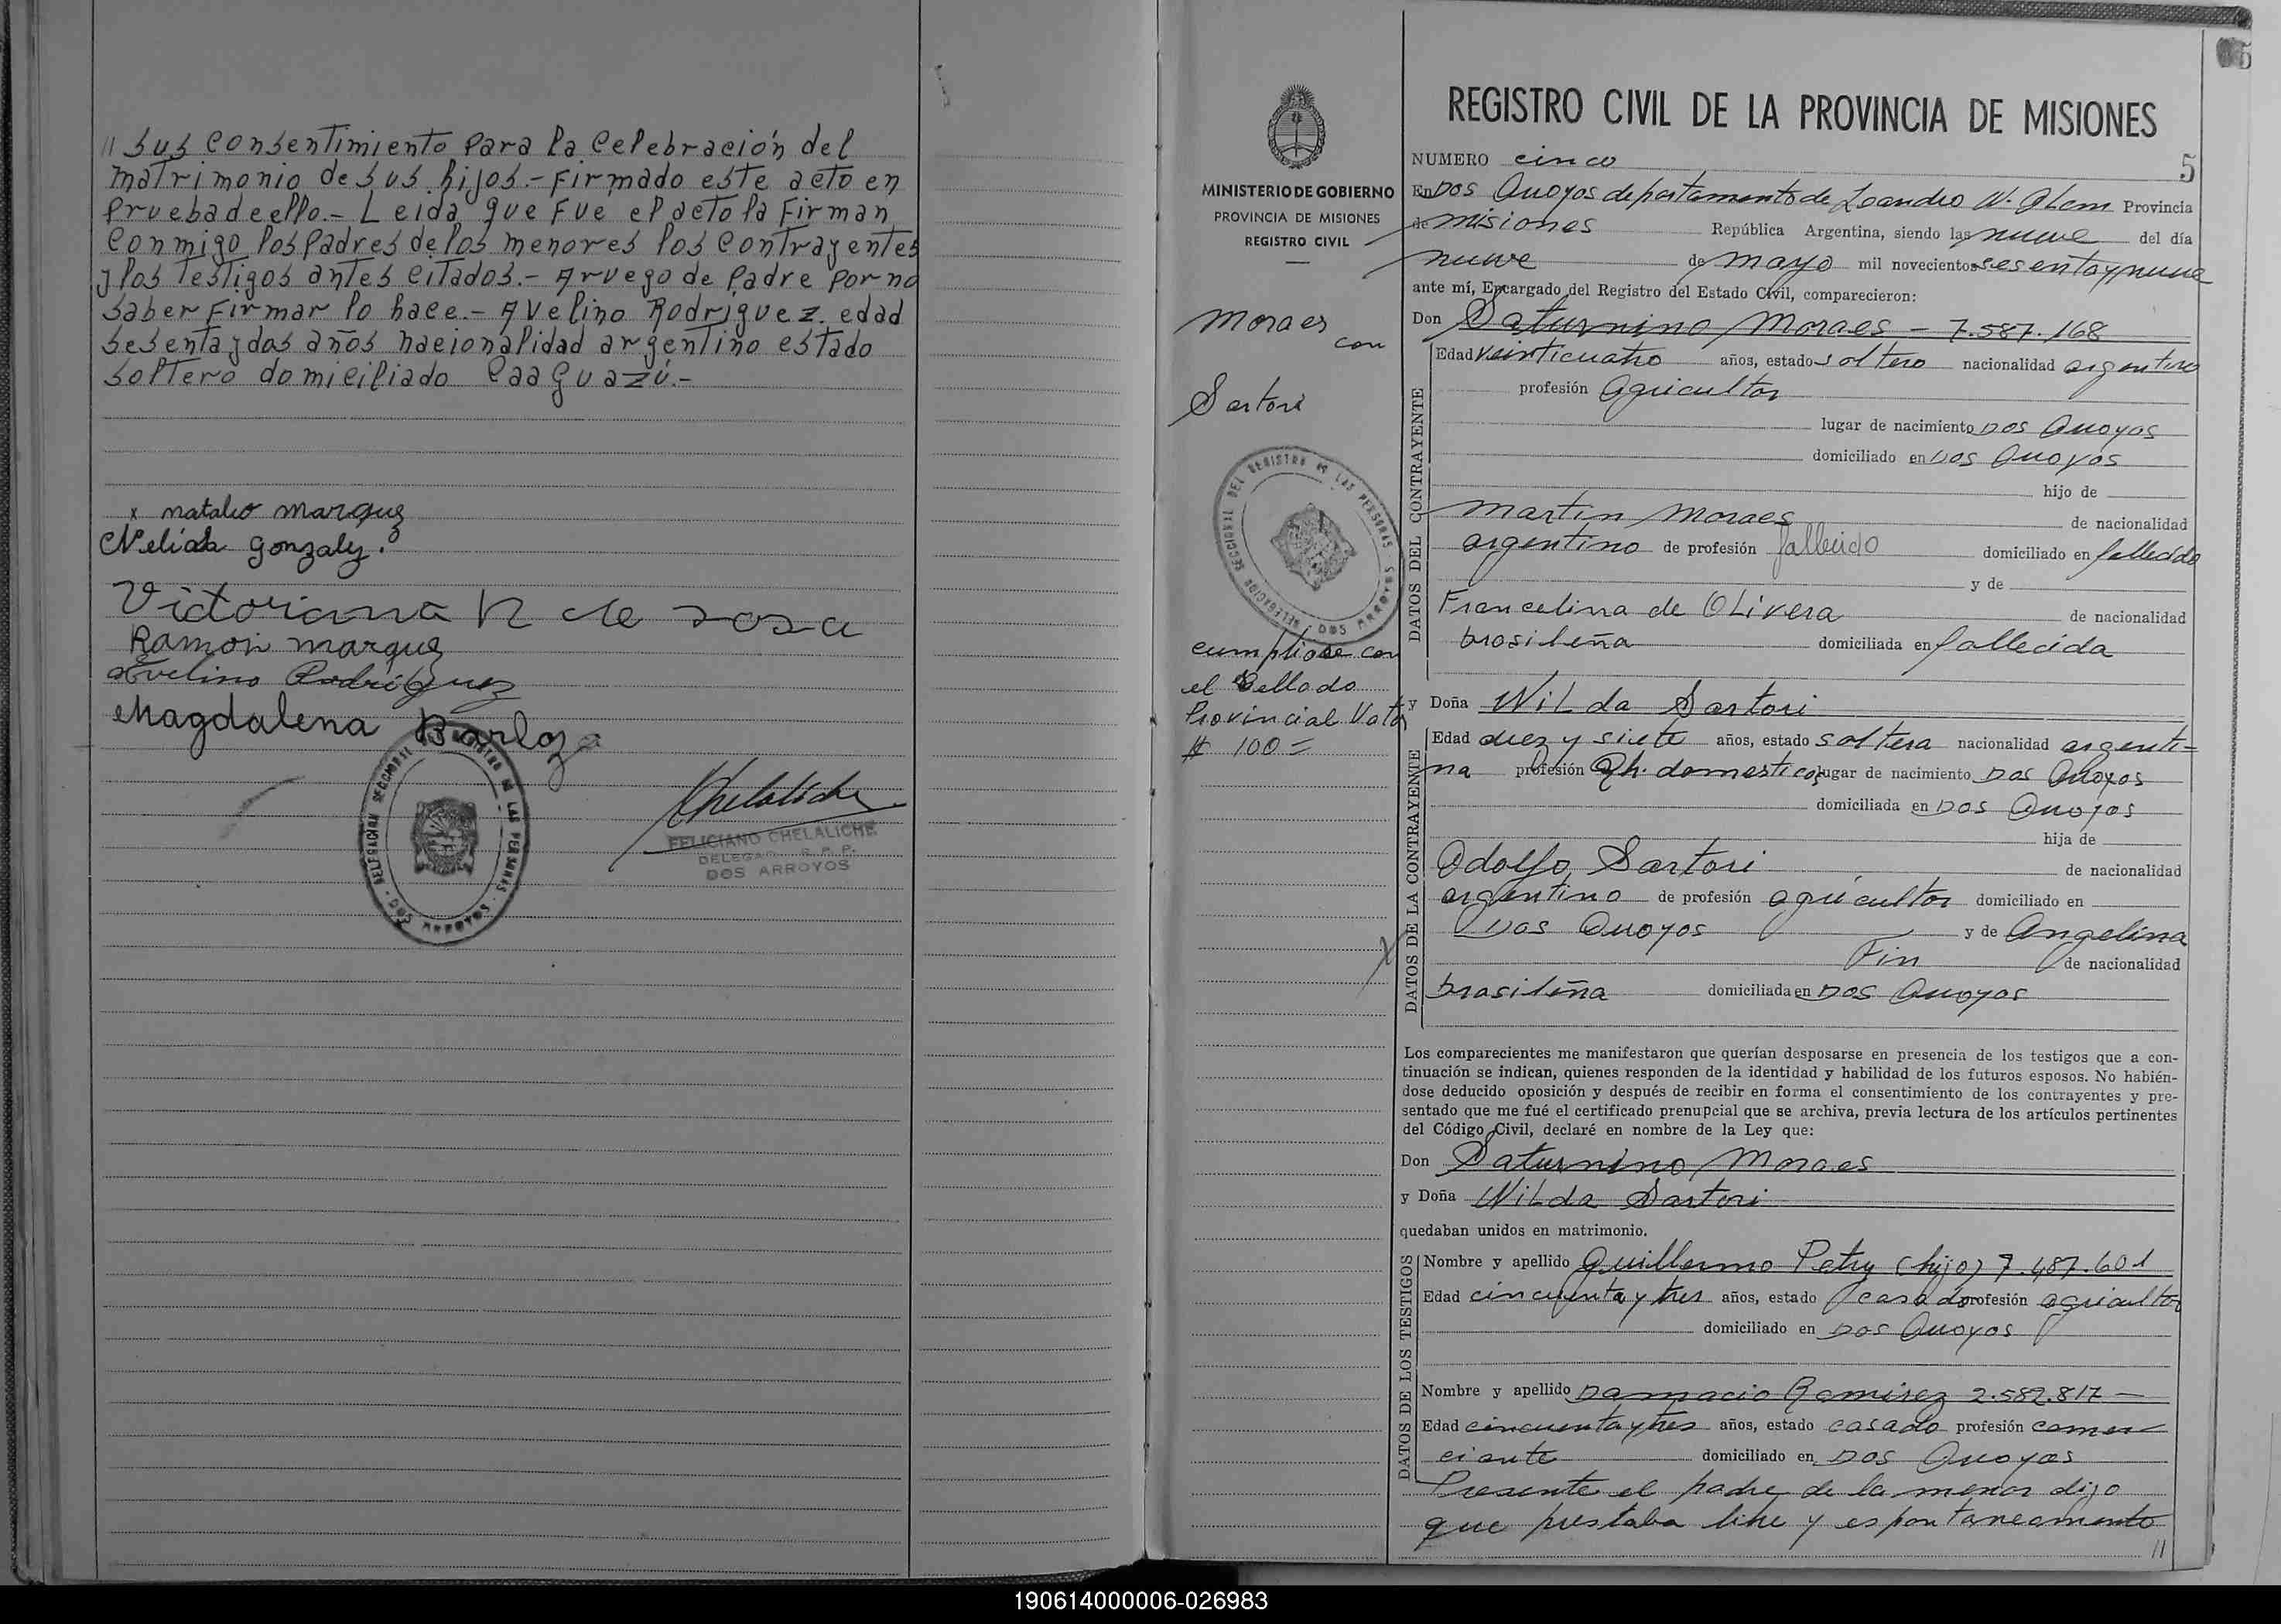 // sus consentimiento para la celebración del
matrimonio de sus hijos.- Firmado este acto en
prueba de ello.- Leida que fue el acto la firman
conmigo los padres de los menores los contrayentes
y los testigos antes citados.- A ruego de padre por no
saber firmar lo hace.- Avelino Rodriguez edad
sesenta y dos años nacionalidad argentino estado
soltero domiciliado Caaguazú.-
x natalio marquez
Nelida gonzalez.
Victoriana R de sosa
Ramón marquez
Avelino Rodriguez
Magdalena Barloza
Chelaliche
FELICIANO CHELALICHE
DELEGADO R. P. P.
DOS ARROYOS
DELEGACION SECCIONAL DEL REGISTRO DE LAS PERSONAS · DOS ARROYOS
5
REGISTRO CIVIL DE LA PROVINCIA DE MISIONES
MINISTERIO DE GOBIERNO
PROVINCIA DE MISIONES
REGISTRO CIVIL
Moraes
con
Sartori
DELEGACION SECCIONAL DEL REGISTRO DE LAS PERSONAS · DOS ARROYOS
cumpliose con
el Sellado
Provincial Valor
$ 100=
NUMERO cinco
5
En Dos Arroyos departamento de Leandro N. Alem Provincia
de misiones República Argentina, siendo las nueve del día
nueve de mayo mil novecientos sesenta y nueve
ante mí, Encargado del Registro del Estado Civil, comparecieron:
Don Saturnino Moraes - 7.587.168
DATOS DEL CONTRAYENTE
Edad veinticuatro años, estado soltero nacionalidad argentino
profesión agricultor
lugar de nacimiento Dos Arroyos
domiciliado en Dos Arroyos
hijo de
Martin Moraes de nacionalidad
argentino de profesión fallecido domiciliado en fallecido
y de
Francelina de Olivera de nacionalidad
brasileña domiciliada en fallecida
y Doña Nilda Sartori
DATOS DE LA CONTRAYENTE
Edad diez y siete años, estado soltera nacionalidad argenti=
na profesión Qh. domesticos lugar de nacimiento Dos Arroyos
domiciliada en Dos Arroyos
hija de
Odolfo Sartori de nacionalidad
argentino de profesión agricultor domiciliado en
Dos Arroyos y de Angelina
Fin de nacionalidad
brasileña domiciliada en Dos Arroyos
Los comparecientes me manifestaron que querían desposarse en presencia de los testigos que a con-
tinuación se indican, quienes responden de la identidad y habilidad de los futuros esposos. No habién-
dose deducido oposición y después de recibir en forma el consentimiento de los contrayentes y pre-
sentado que me fué el certificado prenupcial que se archiva, previa lectura de los artículos pertinentes
del Código Civil, declaré en nombre de la Ley que:
Don Saturnino Moraes
y Doña Nilda Sartori
quedaban unidos en matrimonio.
DATOS DE LOS TESTIGOS
Nombre y apellido Guillermo Petry (hijo) 7.487.601
Edad cincuenta y tres años, estado casado profesión agricultor
domiciliado en Dos Arroyos
Nombre y apellido Damacio Ramirez 2.582.817 -
Edad cincuenta y tres años, estado casado profesión comer
ciante domiciliado en Dos Arroyos
Presente el padre de la menor dijo
que prestaba libre y espontaneamente
//
190614000006-026983